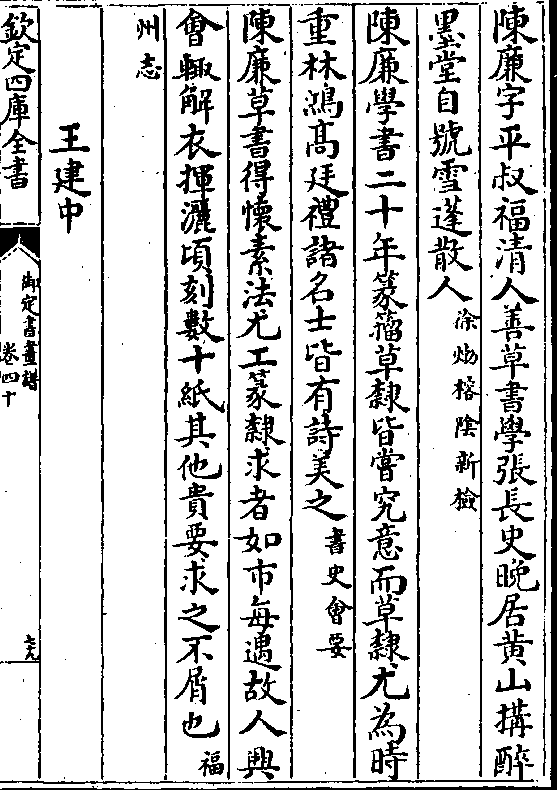 陳廉字平叔福清人善草書學張長史晚居黄山搆醉
墨堂自號雪蓬散人涂㷆榕陰新檢
陳廉學書二十年篆籀草隸皆嘗究意而草隸尤為時
重林鴻髙廷禮諸名士皆有詩美之書史會要
陳廉草書得懷素法尤工篆隸求者如市每遇故人興
會輙解衣揮灑頃刻數十紙其他貴要求之不屑也福
州志
王建中
欽定四庫全書
御定書畫譜
卷四十